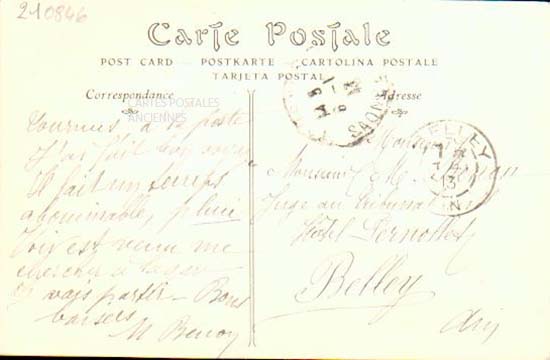 210846
Carte Postale
POST CARD POSTKARTE CARTOLINA POSTALE
TARJETA POSTAL
Correspondance
CARTES POSTALES
ANCIENNES
Tournus, à la poste
J'ai fait bon voyage
Il fait un temps
abominable, pluie
est venu me
chercher à
vais partir - Bons
baisers
Adresse
SAONE
BELLEY
AIN
Monsieur
Juge au Tribunal
Hôtel Pernollet
Belley
Ain